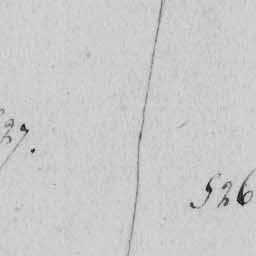 27.
526